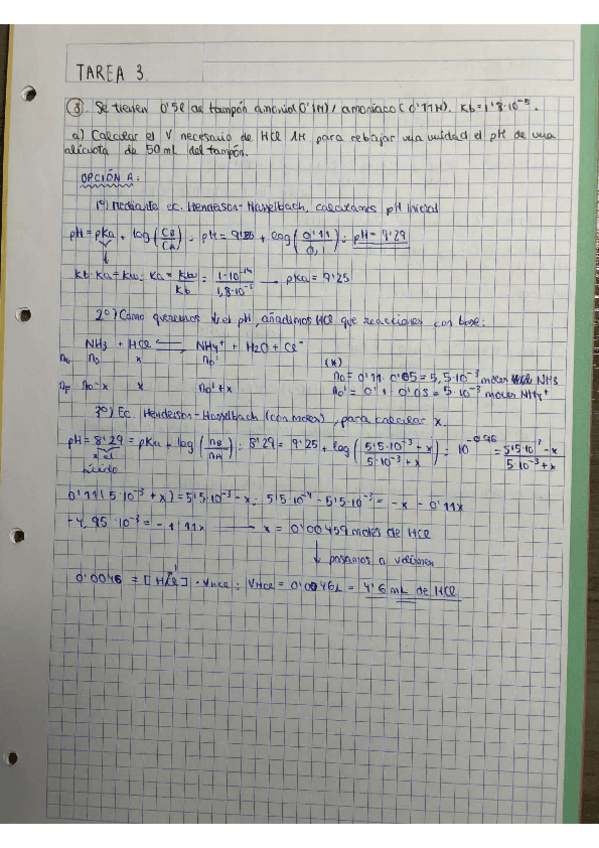 TAREA 3.
8. Se tienen 0'5l de tampón amonio(0'1M)/amoníaco(0'11M). Kb=1'8·10⁻⁵.
a) Calcular el V necesario de HCl 1M para rebajar una unidad el pH de una
alícuota de 50mL del tampón.
OPCIÓN A:
1º) Mediante ec. Henderson-Hasselbach, calculamos pH inicial
pH = pKa + log(CB/CA) - pH = 9'25 + log(0'11/0,1): pH = 9'29
Kb·Ka = Kw: Ka = Kw/Kb = 1·10⁻¹⁴/1,8·10⁻⁵ — pKa = 9'25
2º) Como queremos ↓ el pH, añadimos HCl que reacciones con base:
NH3 + HCl ⇌ NH4⁺ + H2O + Cl⁻
no no x no' (*) no = 0'11 · 0'05 = 5,5·10⁻³ moles NH3
nF no-x x no'+x no' = 0'1 · 0'05 = 5·10⁻³ moles NH4⁺
3º) Ec. Henderson-Hasselbach (con moles), para calcular x.
pH = 8'29 = pKa + log(nB/nA): 8'29 = 9'25 + log(5'5·10⁻³ - x/5·10⁻³ + x): 10⁻⁰'⁹⁶ = 5'5·10⁻³ - x/5·10⁻³ + x
ácido
0'11(5·10⁻³ + x) = 5'5·10⁻³ - x: 5'5·10⁻⁴ - 5'5·10⁻³ = -x - 0'11x
-4,95·10⁻³ = -1'11x → x = 0'00459 moles de HCl
↓ pasamos a volumen
0'0046 = [HCl] · VHCl: VHCl = 0'0046L = 4'6 mL de HCl